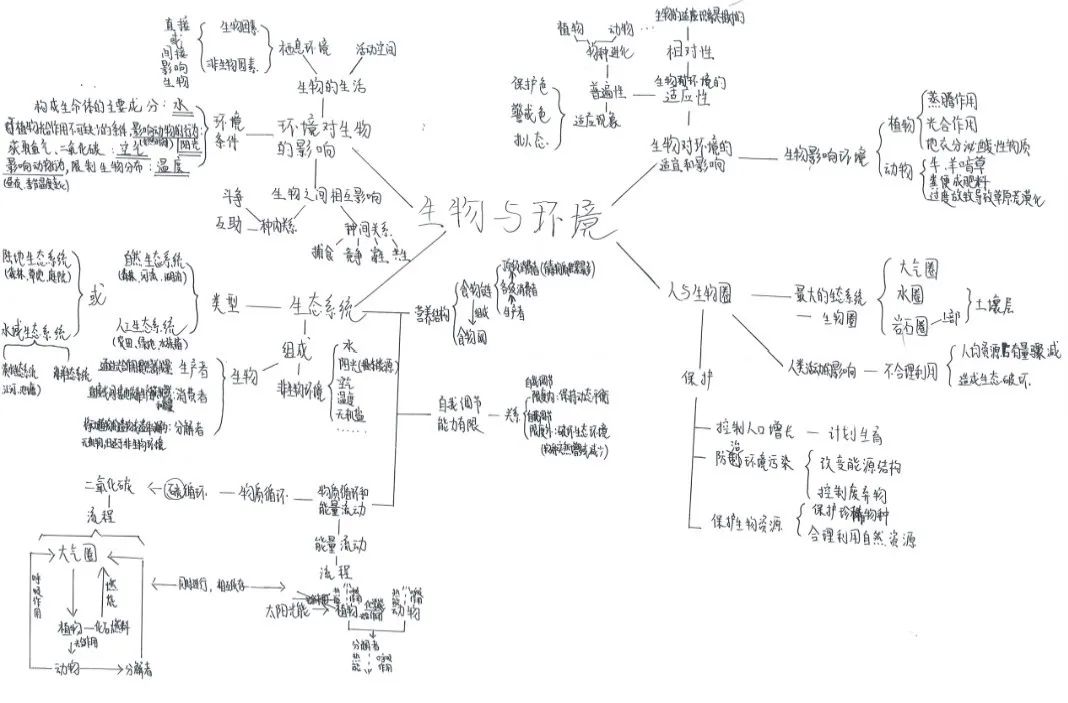 生物与环境
环境对生物
的影响
生物的生活
栖息环境
活动空间
直接
或
间接
影响
生物
生物因素
非生物因素
环境
条件
构成生命体的主要成分:水
阳光
获取氧气、二氧化碳:空气
影响动物行为,限制生物分布:温度
生物之间相互影响
种内关系
斗争
互助
种间关系
捕食
竞争
寄生
共生
生物对环境的
适宜和影响
生物对环境的
适应性
相对性
普遍性
物种进化
植物
动物
适应现象
保护色
警戒色
拟态
生物影响环境
植物
蒸腾作用
光合作用
地衣分泌酸性物质
动物
牛、羊啃草
粪便成肥料
过度放牧导致草原荒漠化
生态系统
类型
自然生态系统
(森林、河流、湖泊)
人工生态系统
(农田、绿地、水族箱)
或
陆地生态系统
水域生态系统
组成
生物
生产者
消费者
分解者
非生物环境
水
空气
温度
无机盐
……
营养结构
食物链
组成
食物网
各级消费者
生产者
自我调节
能力有限
关系
限度内:保持动态平衡
限度外:破坏生态环境
物质循环和
能量流动
物质循环
碳循环
二氧化碳
流程
大气圈
呼吸作用
燃
植物
化石燃料
光合作用
动物
分解者
同时进行,相互依存
能量流动
流程
太阳光能
植物
动物
分解者
热能
呼吸作用
人与生物圈
最大的生态系统
生物圈
大气圈
水圈
岩石圈
上部
土壤层
人类活动的影响
不合理利用
人均资源占有量骤减
造成生态破坏
保护
控制人口增长
计划生育
防治环境污染
改变能源结构
控制废弃物
保护生物资源
保护珍稀物种
合理利用自然资源